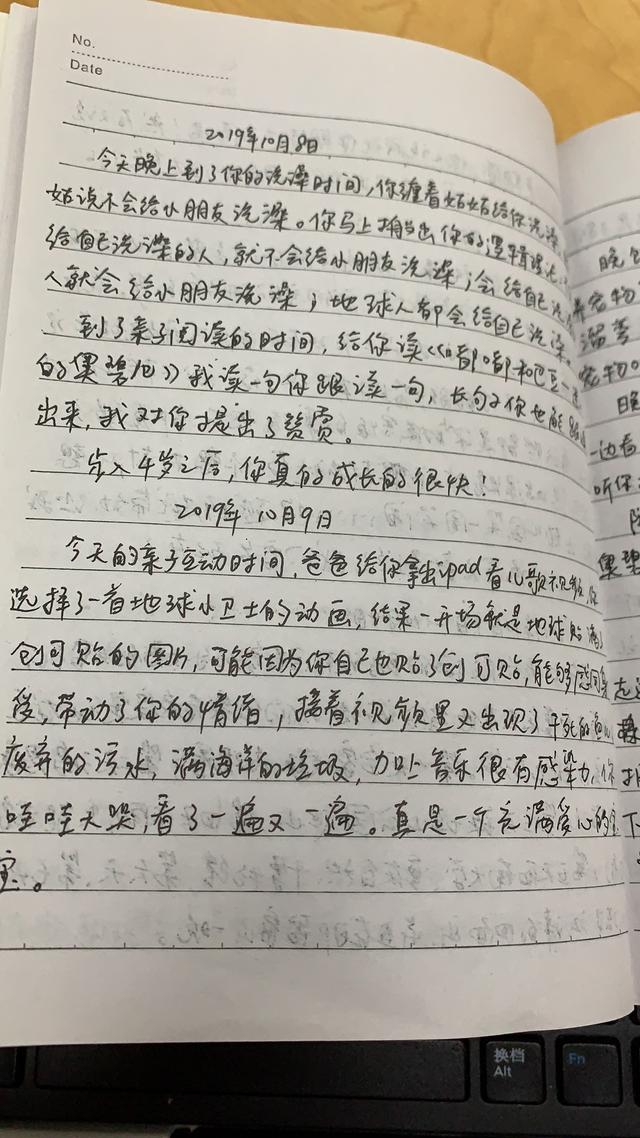 No.
Date
2019年10月8日
今天晚上到了你的洗澡时间,你缠着姑姑给你洗澡
姑说不会给小朋友洗澡。你马上搬出你的逻辑理论
给自己洗澡的人,就不会给小朋友洗澡;会给自己洗
人就会给小朋友洗澡;地球人都会给自己洗澡
到了亲子阅读的时间,给你读《嘟嘟和巴豆
的 》我读一句你跟读一句,长句子你也能
出来,我对你提出了赞赏。
步入4岁之后,你真的成长的很快!
2019年10月9日
今天的亲子互动时间,爸爸给你拿出ipad看儿歌视频,你
选择了一首地球小卫士的动画,结果一开场就是地球贴满
创可贴的图片,可能因为你自己也贴了创可贴,能够感同身
受,带动了你的情绪,接着视频里又出现了干死的鱼儿
废弃的污水,满海洋的垃圾,加上音乐很有感染力,你
哇哇大哭,看了一遍又一遍。真是一个充满爱心的宝
宝。
晚
养宠物
满季
宠物。
晚
一边看
听你
果
换档
Alt
Fn